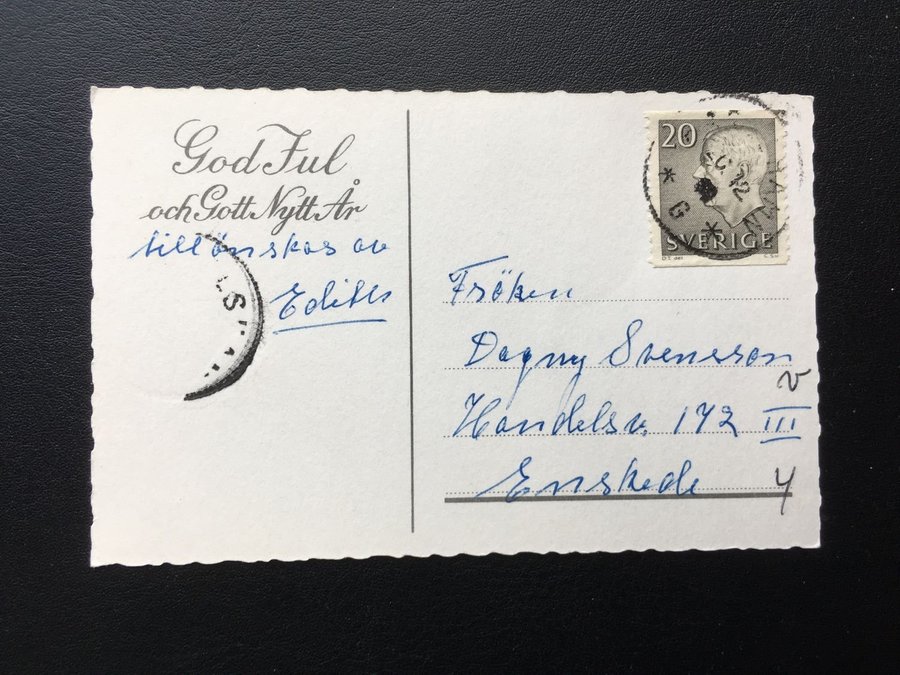 God Jul
och Gott Nytt År
tillönskas av
Edith
20
SVERIGE
Fröken
Dagny Svensson
Handelsv. 172 III
v
Enskede 4